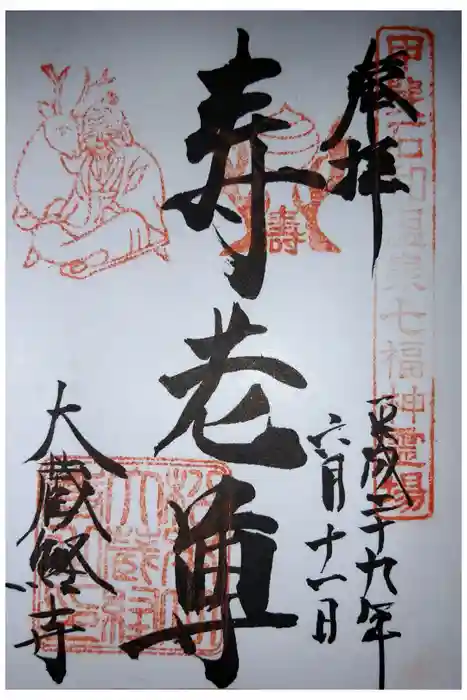 甲斐石和温泉七福神霊場
奉拝
平成二十九年
六月十一日
寿老尊
壽
大蔵経寺